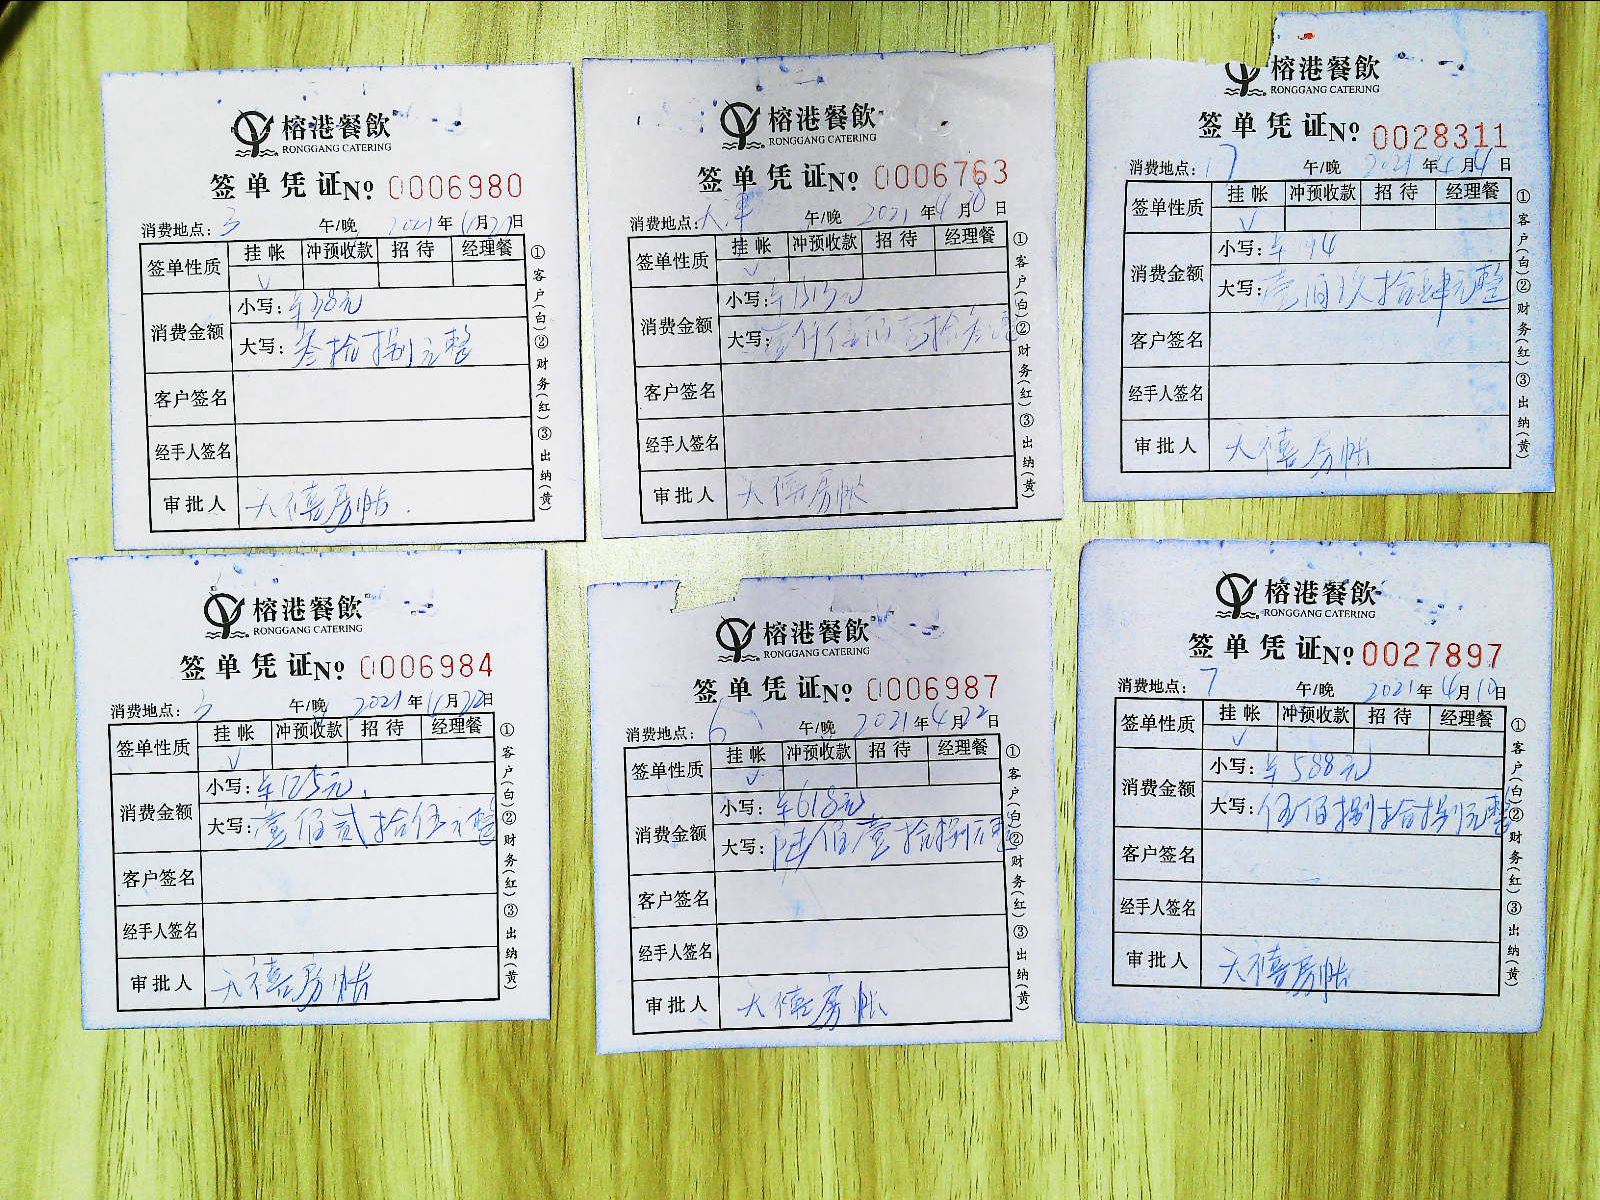 榕港餐飲
RONGGANG CATERING
签单凭证№ 0006980
消费地点: 3 午/晚 2021年4月21日
签单性质 挂帐 冲预收款 招待 经理餐
√
消费金额 小写: ¥38元
大写: 叁拾捌元整
客户签名
经手人签名
审批人 天禧房帐
①客户(白)②财务(红)③出纳(黄)
榕港餐飲
RONGGANG CATERING
签单凭证№ 0006763
消费地点: 午/晚 2021年4月30日
签单性质 挂帐 冲预收款 招待 经理餐
√
消费金额 小写: ¥1513元
大写: 壹仟伍佰壹拾叁元整
客户签名
经手人签名
审批人 天禧房帐
①客户(白)②财务(红)③出纳(黄)
榕港餐飲
RONGGANG CATERING
签单凭证№ 0028311
消费地点: 17 午/晚 2021年4月4日
签单性质 挂帐 冲预收款 招待 经理餐
√
消费金额 小写: ¥194
大写: 壹佰玖拾肆元整
客户签名
经手人签名
审批人 天禧房帐
①客户(白)②财务(红)③出纳(黄)
榕港餐飲
RONGGANG CATERING
签单凭证№ 0006984
消费地点: 3 午/晚 2021年4月22日
签单性质 挂帐 冲预收款 招待 经理餐
√
消费金额 小写: ¥125元
大写: 壹佰贰拾伍元整
客户签名
经手人签名
审批人 天禧房帐
①客户(白)②财务(红)③出纳(黄)
榕港餐飲
RONGGANG CATERING
签单凭证№ 0006987
消费地点: 6 午/晚 2021年4月22日
签单性质 挂帐 冲预收款 招待 经理餐
√
消费金额 小写: ¥618元
大写: 陆佰壹拾捌元整
客户签名
经手人签名
审批人 天禧房帐
①客户(白)②财务(红)③出纳(黄)
榕港餐飲
RONGGANG CATERING
签单凭证№ 0027897
消费地点: 7 午/晚 2021年4月10日
签单性质 挂帐 冲预收款 招待 经理餐
√
消费金额 小写: ¥588元
大写: 伍佰捌拾捌元整
客户签名
经手人签名
审批人 天禧房帐
①客户(白)②财务(红)③出纳(黄)